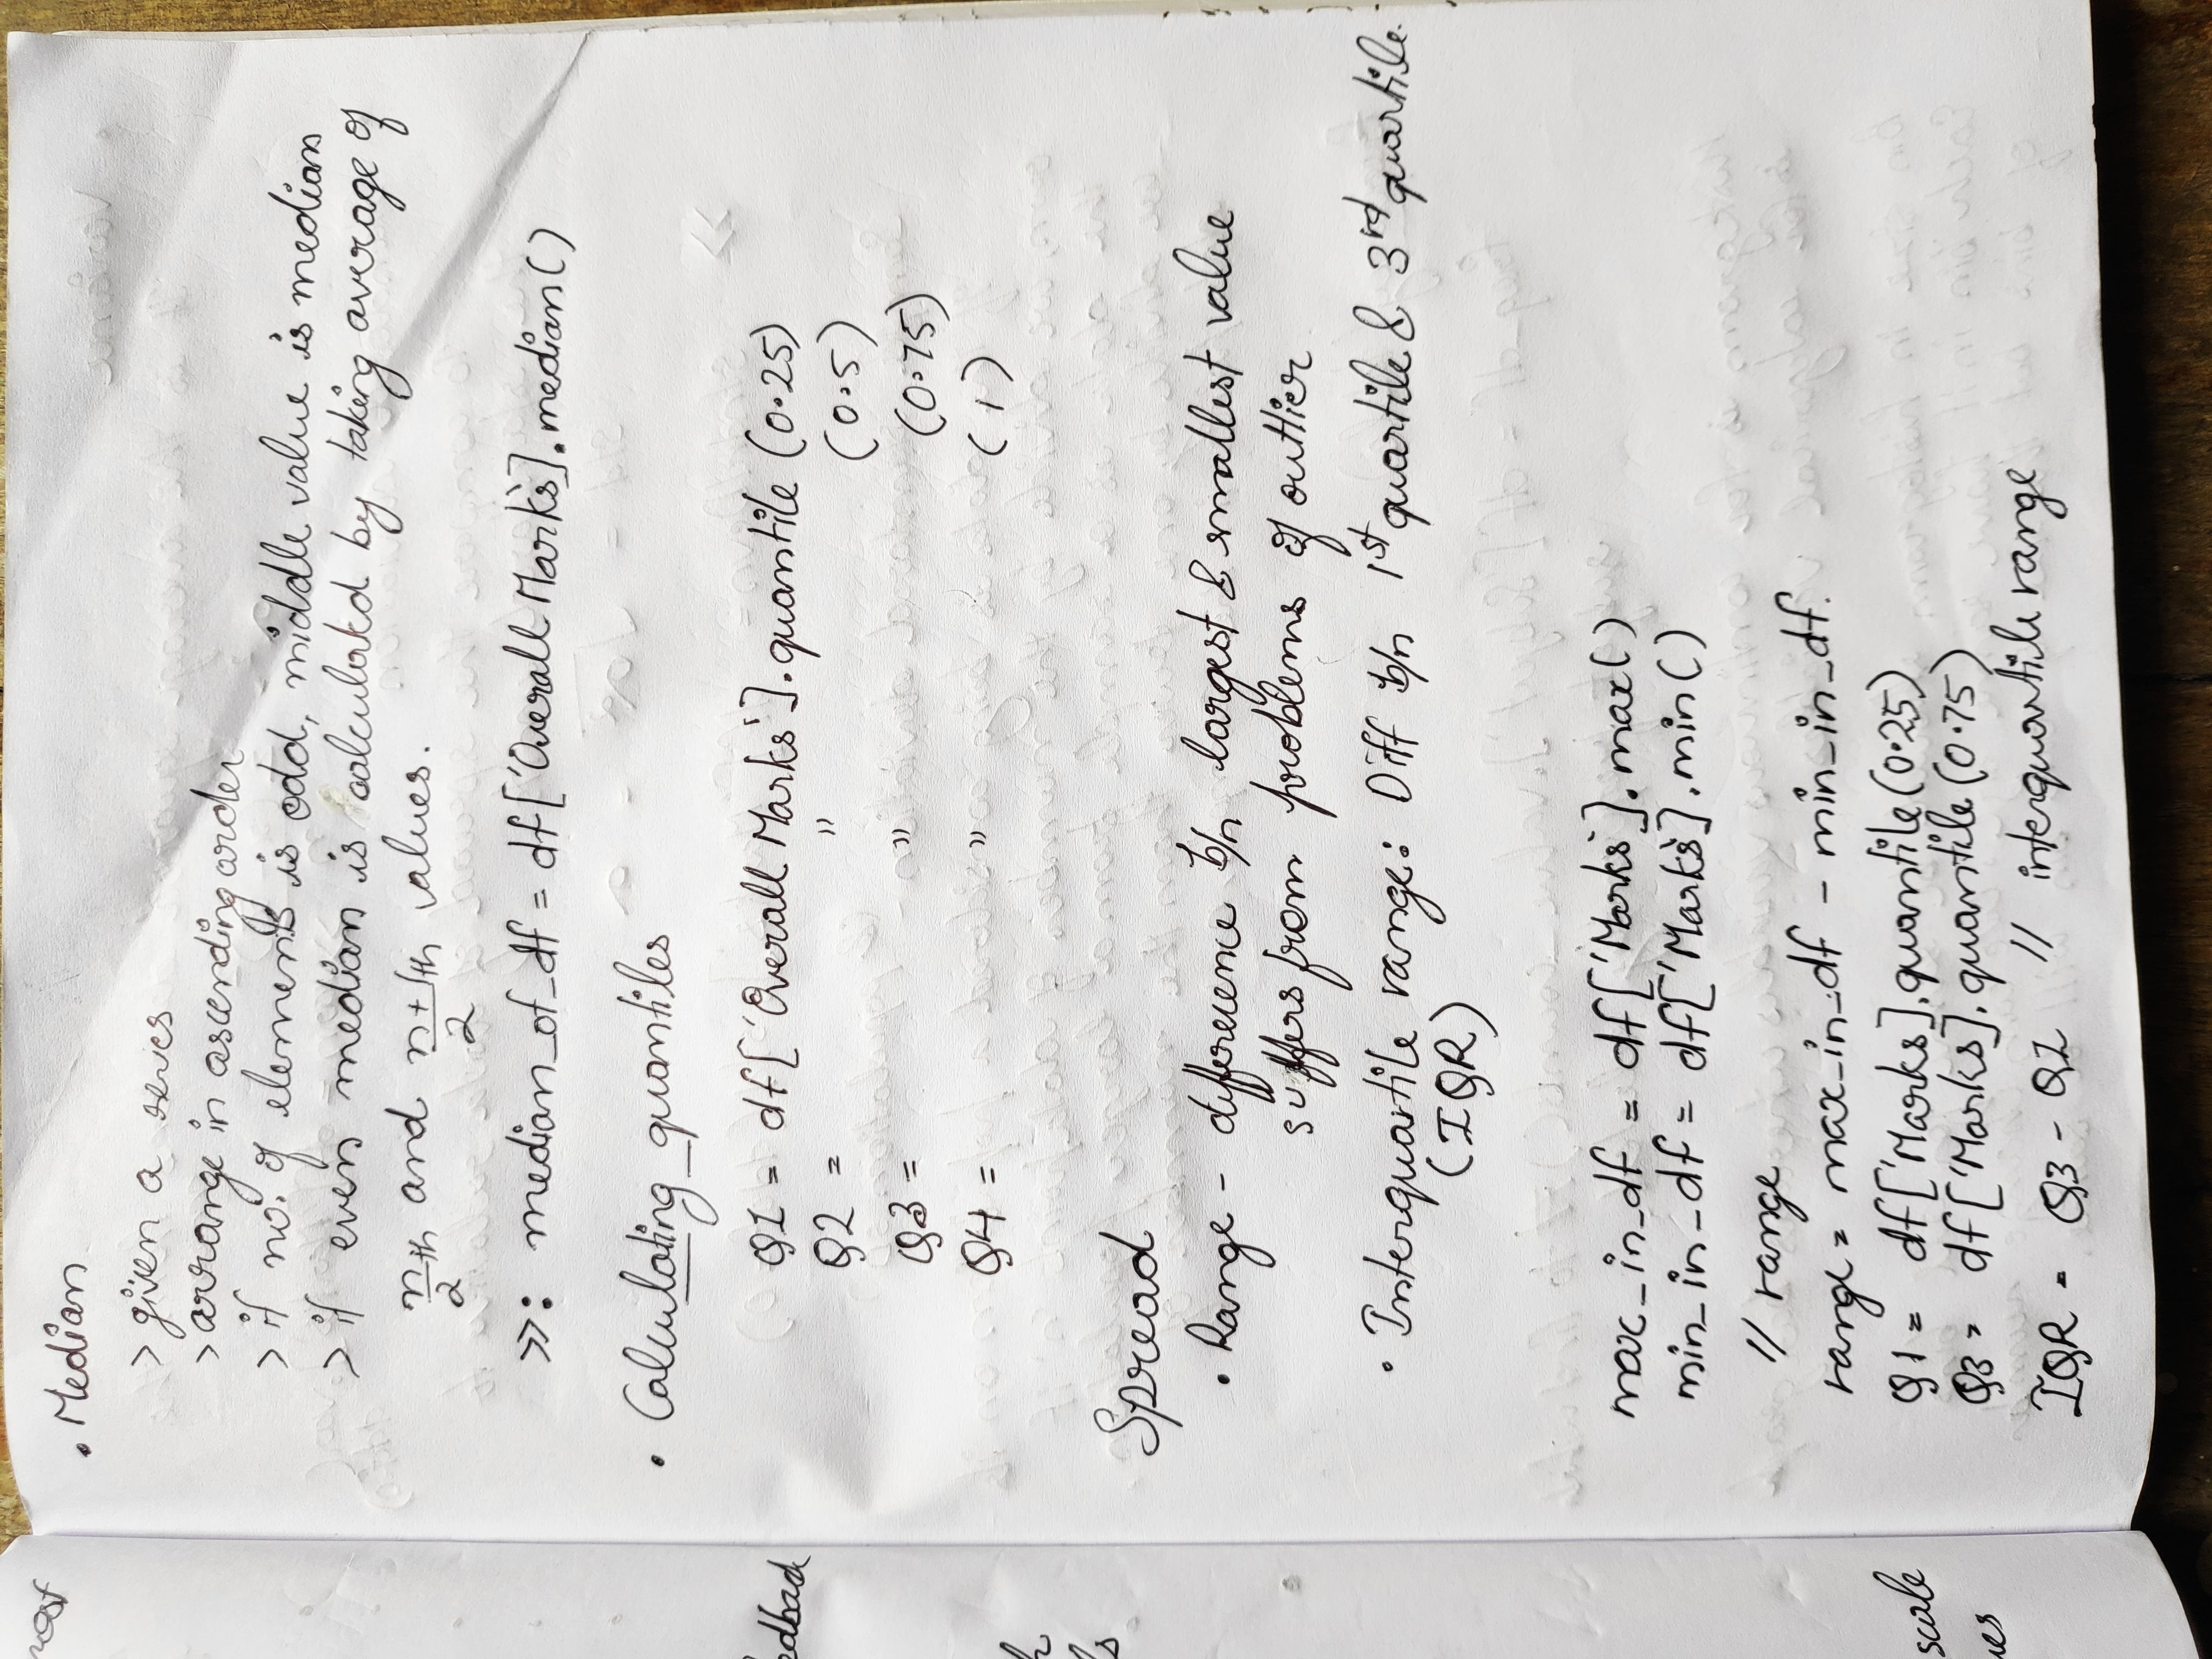 • Median
> given a series
> arrange in ascending order
> if no. of elements is odd, middle value is median
> if even median is calculatd by taking average of
n/2 th and n+1/2 th values.
>>: median_of_df = df['Overall Marks'].median()
• Calculating quantiles
Q1 = df['Overall Marks'].quantile (0.25)
Q2 = " (0.5)
Q3 = " (0.75)
Q4 = " (1)
Spread
• Range - difference b/n largest & smallest value
suffers from problems of outlier
• Interquartile range: Diff b/n 1st quartile & 3rd quartile.
(IQR)
max_in_df = df['Marks'].max()
min_in_df = df['Marks'].min()
// range
range = max_in_df - min_in_df.
Q1 = df['Marks].quantile(0.25)
Q3 = df['Marks].quantile(0.75)
IQR = Q3 - Q1 // interquartile range
edback
scale